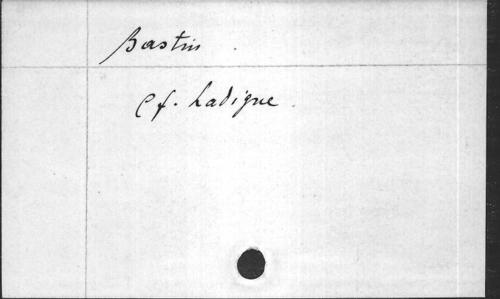 Bastin.
Cf. Ladigue.